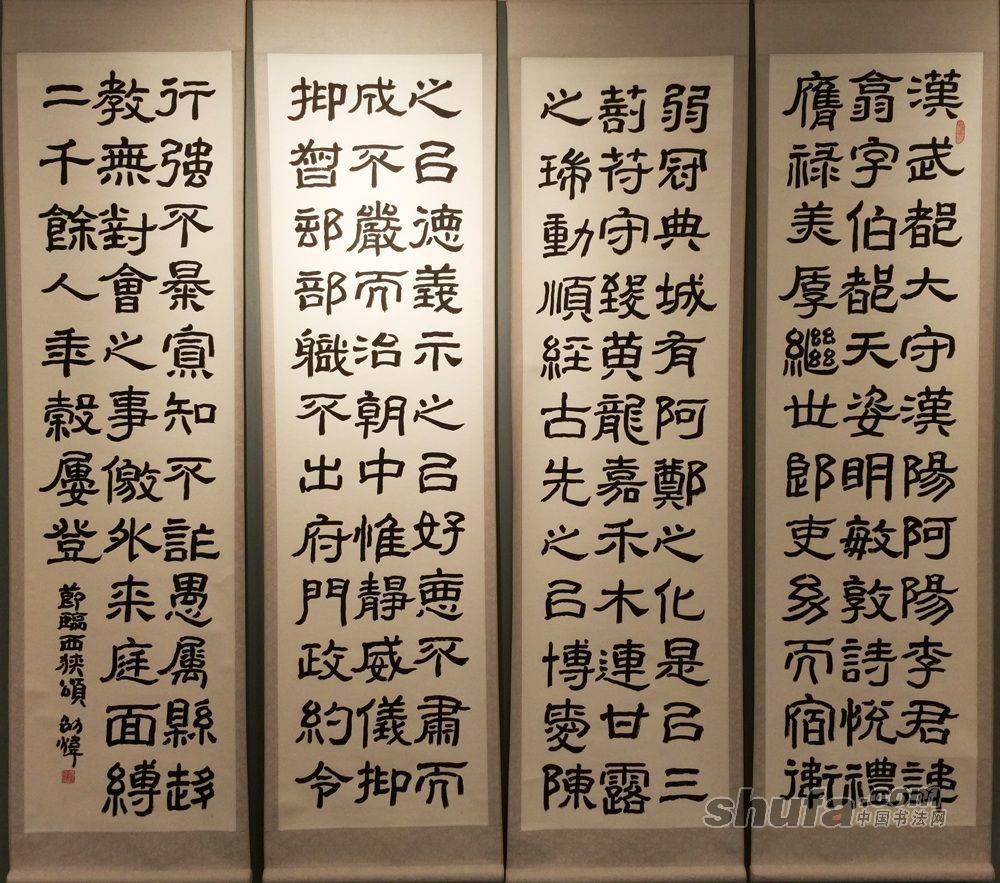 漢武都大守漢陽阿陽李君諱
翕字伯都天姿明敏敦詩悅禮
膺祿美厚繼世郎吏幼而宿衛
弱冠典城有阿鄭之化是以三
剖符守致黄龍嘉禾木連甘露
之瑞動順經古先之以博愛陳
之以德義示之以好惡不肅而
成不嚴而治朝中惟靜威儀抑
抑督郵部職不出府門政約令
行强不暴寡知不詐愚属縣趍
教無對會之事徼外来庭面縛
二千餘人年穀屢登
節臨西狹頌
shufa.com
中国书法网